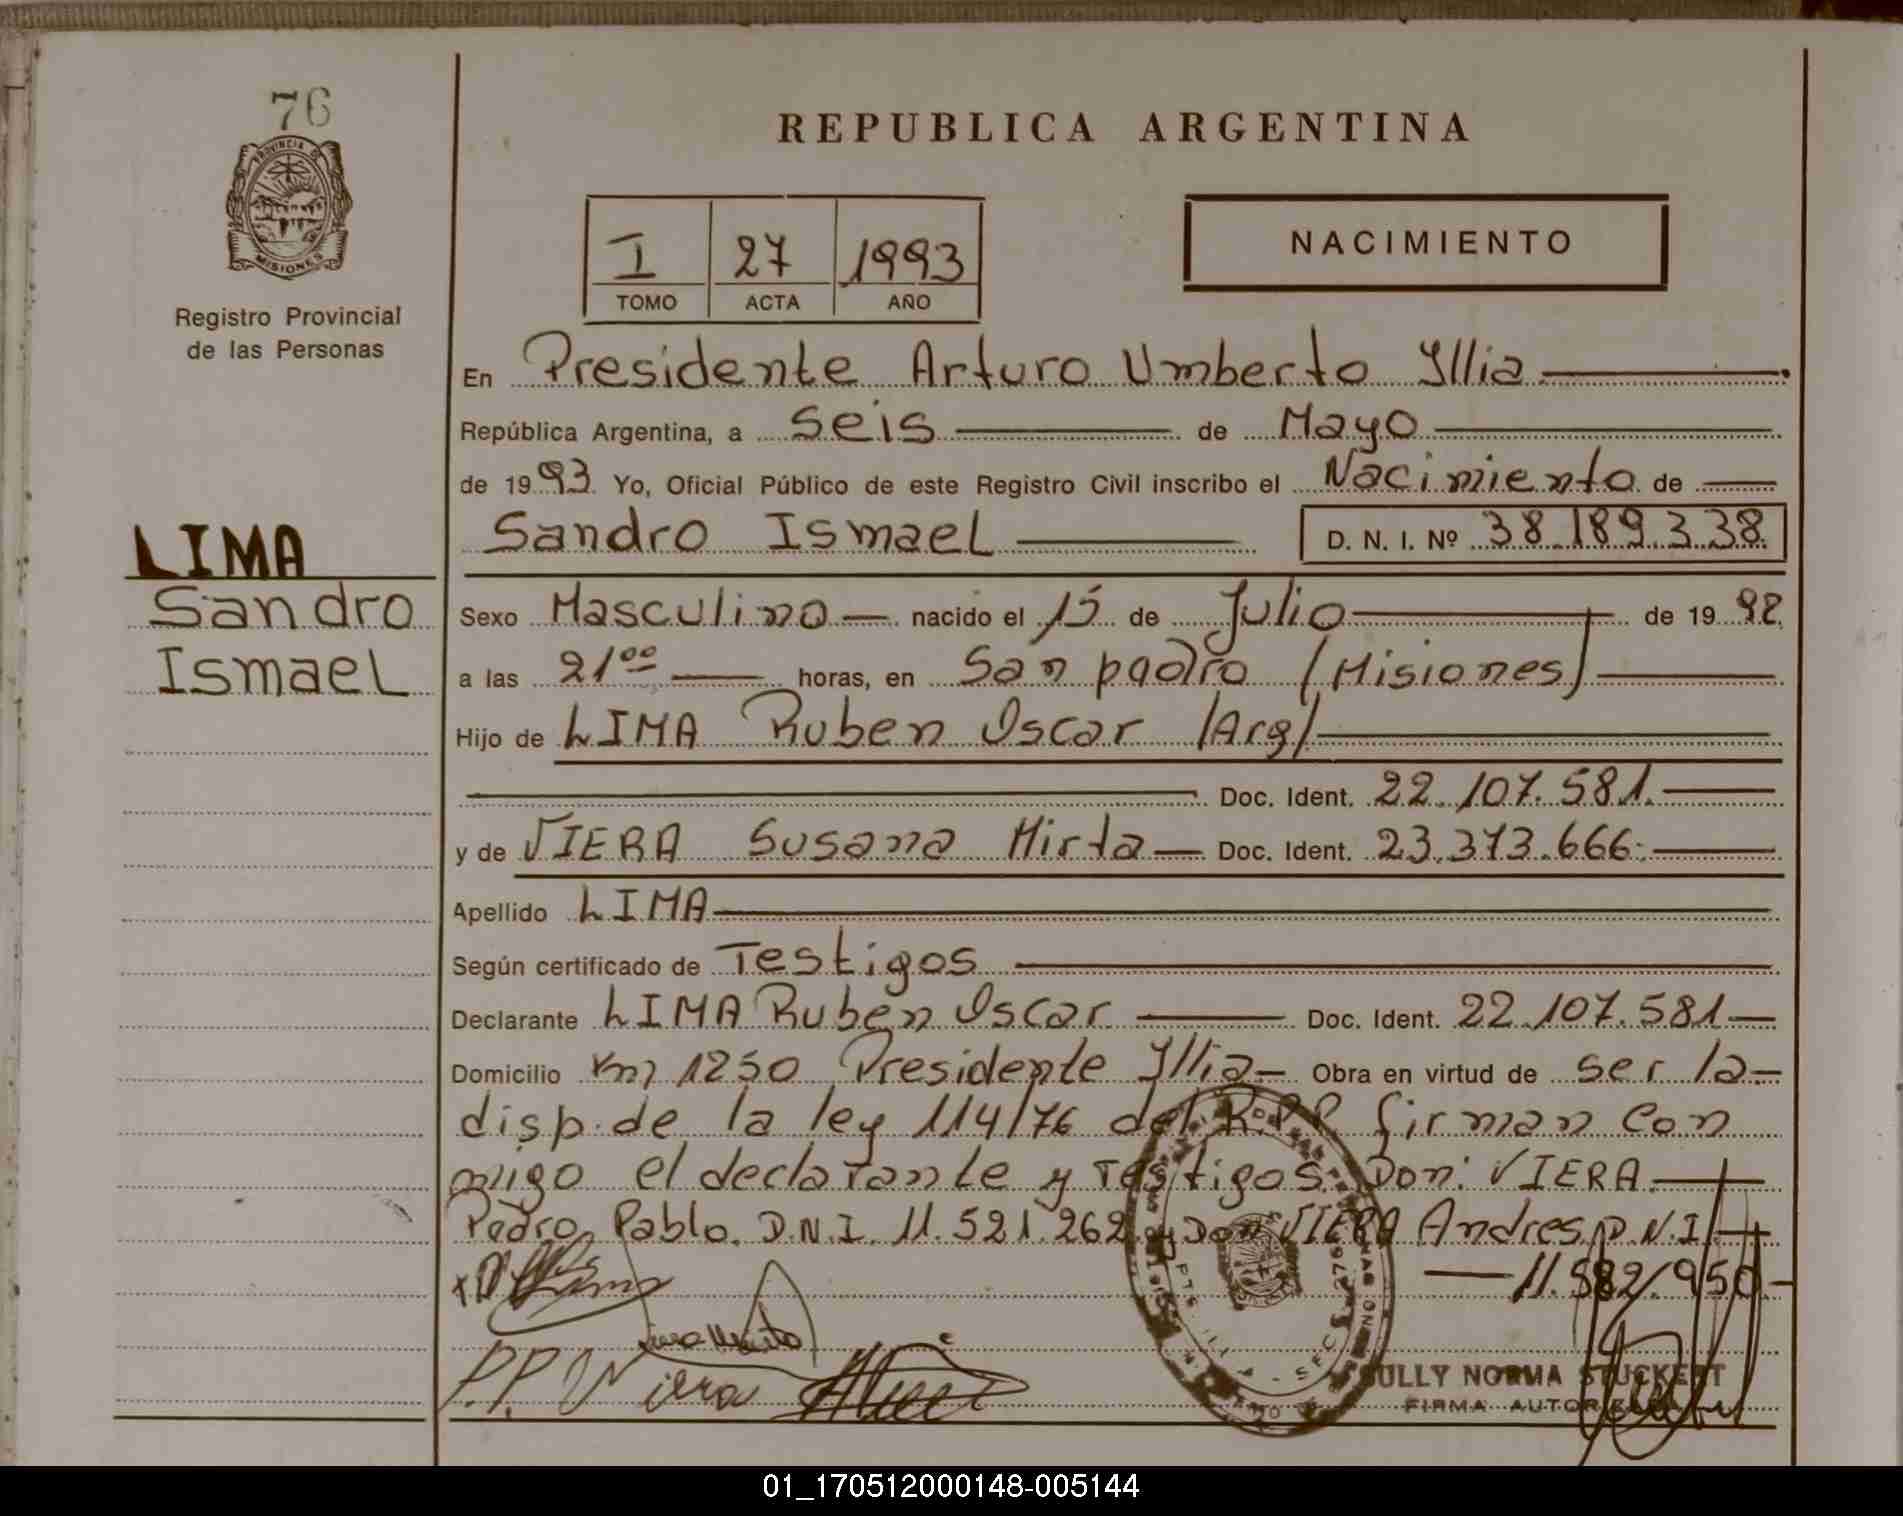 76
PROVINCIA DE
MISIONES
Registro Provincial
de las Personas
LIMA
Sandro
Ismael
REPUBLICA ARGENTINA
I 27 1993
TOMO ACTA AÑO
NACIMIENTO
En Presidente Arturo Umberto Yllia
República Argentina, a seis de Mayo
de 1993. Yo, Oficial Público de este Registro Civil inscribo el Nacimiento de
Sandro Ismael D. N. I. Nº 38.189.338
Sexo Masculino nacido el 15 de Julio de 1992
a las 21⁰⁰ horas, en San pedro (Misiones)
Hijo de LIMA Ruben Oscar (Arg)
Doc. Ident. 22.107.581.
y de VIERA Susana Mirta Doc. Ident. 23.373.666.
Apellido LIMA
Según certificado de Testigos
Declarante LIMA Ruben Oscar Doc. Ident. 22.107.581
Domicilio km 1250 Presidente Yllia Obra en virtud de ser la
disp. de la ley 114/76 del R.P.P. firman con
migo el declarante y Testigos Don: VIERA
Pedro Pablo. D.N.I. 11.521.262 y Don VIERA Andres D.N.I.
11.582.950
P.P. Viera
SULLY NORMA STUCKERT
FIRMA AUTORIZADA
01_170512000148-005144